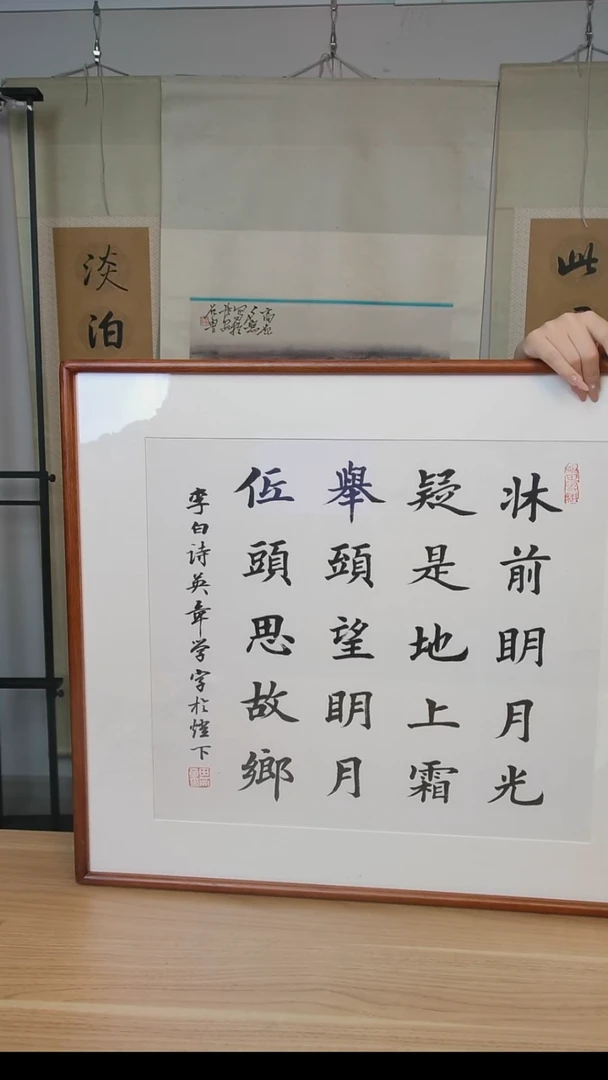 牀前明月光
疑是地上霜
舉頭望明月
低頭思故鄉
李白詩英章學字於燈下
淡泊
此